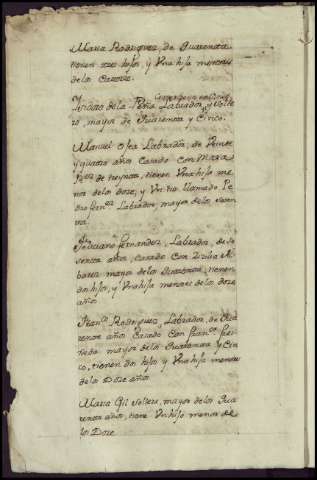 Maria Rodriguez, de Quarenta
tienen tres hijos, y Vna hija menores
de los Catorze
de la Peña Labrador, y Solte
ro, mayor de Quarenta y Cinco.
Manuel Labrador, de Veinte
y quatro años Casado Con Maria
de treynta, tienen Vna hija me
nor de los doze, y Vn tio llamado Pe
dro fernz Labrador, mayor de los Sesen
ta.
fernandez, Labrador, de Se
senta años, Casado Con
mayor de los Quarenta, tienen
dos hijos, y Vna hija menores de los doze
años
Franco Rodriguez, Labrador, de Qua
renta años Casado Con Franca
mayor de los Quarenta y Cin
co, tienen dos hijos y Vna hija menores
de los Doze años.
Maria Gil Soltera, mayor de los Qua
renta años, tiene Vn hijo menor de
los Doze